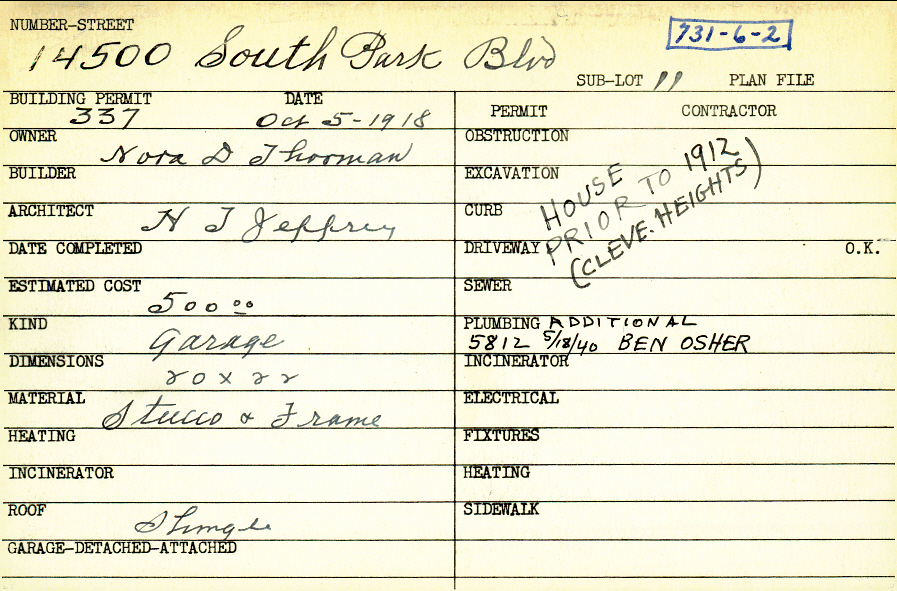 NUMBER-STREET
14500 South Park Blvd
731-6-2
SUB-LOT 11 PLAN FILE
BUILDING PERMIT DATE
337 Oct 5-1918
OWNER
Nora D Thorman
BUILDER
ARCHITECT
H T Jeffrey
DATE COMPLETED
ESTIMATED COST
500 00
KIND
Garage
DIMENSIONS
20 x 22
MATERIAL
Stucco & Frame
HEATING
INCINERATOR
ROOF
Shingle
GARAGE-DETACHED-ATTACHED
PERMIT CONTRACTOR
OBSTRUCTION
EXCAVATION
CURB
HOUSE
PRIOR TO 1912
(CLEVE. HEIGHTS)
DRIVEWAY O.K.
SEWER
PLUMBING ADDITIONAL
5812 5/18/40 BEN OSHER
INCINERATOR
ELECTRICAL
FIXTURES
HEATING
SIDEWALK